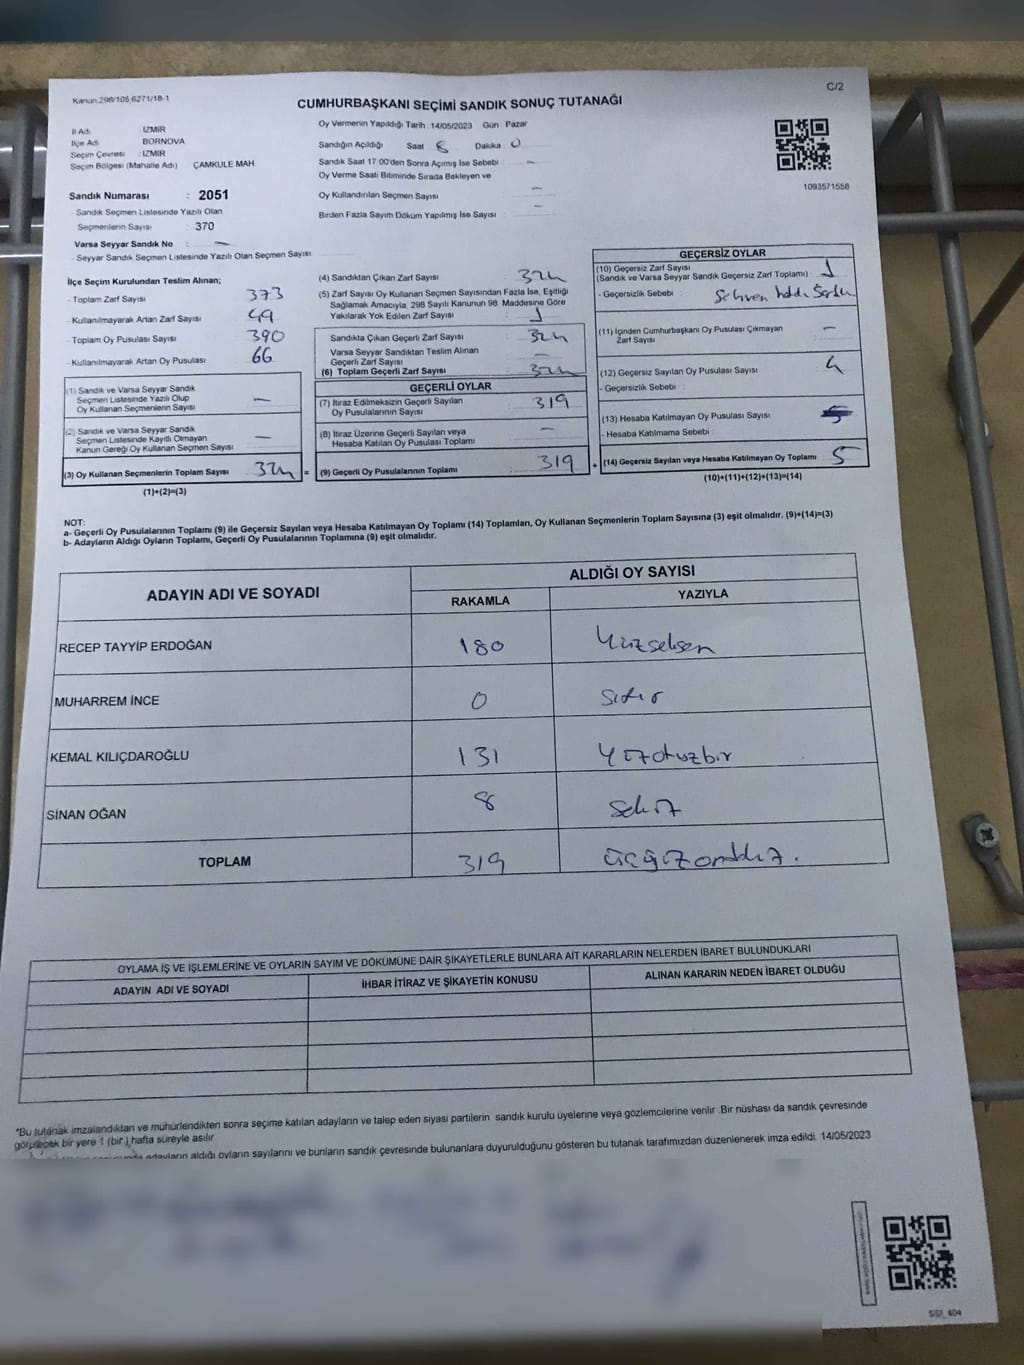 Kanun.298/105,6271/18-1
C/2
CUMHURBAŞKANI SEÇİMİ SANDIK SONUÇ TUTANAĞI
İl Adı İZMİR
İlçe Adı BORNOVA
Seçim Çevresi : İZMİR
Seçim Bölgesi (Mahalle Adı) ÇAMKULE MAH
Sandık Numarası : 2051
- Sandık Seçmen Listesinde Yazılı Olan
Seçmenlerin Sayısı : 370
Varsa Seyyar Sandık No : -
- Seyyar Sandık Seçmen Listesinde Yazılı Olan Seçmen Sayısı
Oy Vermenin Yapıldığı Tarih :14/05/2023 Gün Pazar
Sandığın Açıldığı Saat 8 Dakika 0
Sandık Saat 17:00'den Sonra Açmış İse Sebebi : -
Oy Verme Saati Bitiminde Sırada Bekleyen ve
Oy Kullandırılan Seçmen Sayısı -
Birden Fazla Sayım Döküm Yapılmış İse Sayısı -
1093571558
İlçe Seçim Kurulundan Teslim Alınan;
- Toplam Zarf Sayısı 373
- Kullanılmayarak Artan Zarf Sayısı 49
- Toplam Oy Pusulası Sayısı 390
- Kullanılmayarak Artan Oy Pusulası 66
(1) Sandık ve Varsa Seyyar Sandık
Seçmen Listesinde Yazılı Olup
Oy Kullanan Seçmenlerin Sayısı -
(2) Sandık ve Varsa Seyyar Sandık
Seçmen Listesinde Kayıtlı Olmayan
Kanun Gereği Oy Kullanan Seçmen Sayısı -
(3) Oy Kullanan Seçmenlerin Toplam Sayısı 324 =
(1)+(2)=(3)
(4) Sandıktan Çıkan Zarf Sayısı : 324
(5) Zarf Sayısı Oy Kullanan Seçmen Sayısından Fazla İse, Eşitliği
Sağlamak Amacıyla, 298 Sayılı Kanunun 98. Maddesine Göre
Yakılarak Yok Edilen Zarf Sayısı : 1
Sandıkta Çıkan Geçerli Zarf Sayısı : 324
Varsa Seyyar Sandıktan Teslim Alınan
Geçerli Zarf Sayısı -
(6) Toplam Geçerli Zarf Sayısı 324
GEÇERLİ OYLAR
(7) İtiraz Edilmeksizin Geçerli Sayılan
Oy Pusulalarının Sayısı 319
(8) İtiraz Üzerine Geçerli Sayılan veya
Hesaba Katılan Oy Pusulası Toplamı -
(9) Geçerli Oy Pusulalarının Toplamı 319 +
GEÇERSİZ OYLAR
(10) Geçersiz Zarf Sayısı
(Sandık ve Varsa Seyyar Sandık Geçersiz Zarf Toplamı) : 1
- Geçersizlik Sebebi :
(11) İçinden Cumhurbaşkanı Oy Pusulası Çıkmayan
Zarf Sayısı -
(12) Geçersiz Sayılan Oy Pusulası Sayısı 4
- Geçersizlik Sebebi :
(13) Hesaba Katılmayan Oy Pusulası Sayısı
- Hesaba Katılmama Sebebi
(14) Geçersiz Sayılan veya Hesaba Katılmayan Oy Toplamı : 5
(10)+(11)+(12)+(13)=(14)
NOT:
a- Geçerli Oy Pusulalarının Toplamı (9) ile Geçersiz Sayılan veya Hesaba Katılmayan Oy Toplamı (14) Toplamları, Oy Kullanan Seçmenlerin Toplam Sayısına (3) eşit olmalıdır. (9)+(14)=(3)
b- Adayların Aldığı Oyların Toplamı, Geçerli Oy Pusulalarının Toplamına (9) eşit olmalıdır.
ADAYIN ADI VE SOYADI
ALDIĞI OY SAYISI
RAKAMLA YAZIYLA
RECEP TAYYİP ERDOĞAN 180 Yüzseksen
MUHARREM İNCE 0 sıfır
KEMAL KILIÇDAROĞLU 131 Yüzotuzbir
SİNAN OĞAN 8 sekiz
TOPLAM 319 üçyüzondokuz.
OYLAMA İŞ VE İŞLEMLERİNE VE OYLARIN SAYIM VE DÖKÜMÜNE DAİR ŞİKAYETLERLE BUNLARA AİT KARARLARIN NELERDEN İBARET BULUNDUKLARI
ADAYIN ADI VE SOYADI İHBAR İTİRAZ VE ŞİKAYETİN KONUSU ALINAN KARARIN NEDEN İBARET OLDUĞU
*Bu tutanak imzalandıktan ve mühürlendikten sonra seçime katılan adayların ve talep eden siyasi partilerin sandık kurulu üyelerine veya gözlemcilerine verilir .Bir nüshası da sandık çevresinde
görülecek bir yere 1 (bir ) hafta süreyle asılır.
adayların aldığı oyların sayılarını ve bunların sandık çevresinde bulunanlara duyurulduğunu gösteren bu tutanak tarafımızdan düzenlenerek imza edildi. 14/05/2023
SSI_404